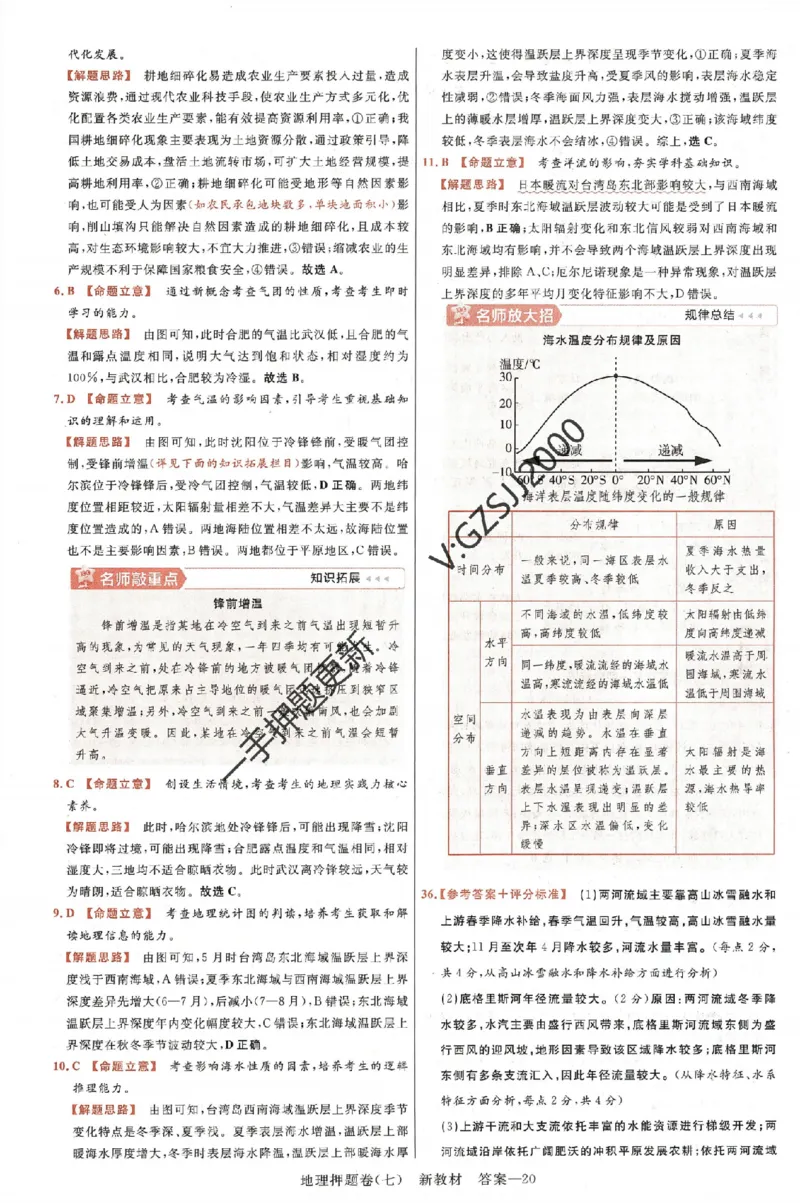 代化发展。
【解题思路】 耕地细碎化易造成农业生产要素投入过量,造成
资源浪费,通过现代农业科技手段,使农业生产方式多元化,优
化配置各类农业生产要素,能有效提高资源利用率,①正确;我
国耕地细碎化现象主要表现为土地资源分散,通过政策引导,降
低土地交易成本,盘活土地流转市场,可扩大土地经营规模,提
高耕地利用率,②正确;耕地细碎化可能受地形等自然因素影
响,也可能受人为因素(如农民承包地块数多,单块地面积小)影
响,削山填沟只能解决自然因素造成的耕地细碎化,且成本较
高,对生态环境影响较大,不宜大力推进,③错误;缩减农业的生
产规模不利于保障国家粮食安全,④错误。故选 A。
6. B 【命题立意】 通过新概念考查气团的性质,考查考生即时
学习的能力。
【解题思路】 由图可知,此时合肥的气温比武汉低,且合肥的气
温和露点温度相同,说明大气达到饱和状态,相对湿度约为
100%,与武汉相比,合肥较为冷湿。故选 B。
7. D 【命题立意】 考查气温的影响因素,引导考生重视基础知
识的理解和运用。
【解题思路】 由图可知,此时沈阳位于冷锋锋前,受暖气团控
制,受锋前增温(详见下面的知识拓展栏目)影响,气温较高。哈
尔滨位于冷锋锋后,受冷气团控制,气温较低,D 正确。两地纬
度位置相距较近,太阳辐射量相差不大,气温差异大主要不是纬
度位置造成的,A 错误。两地海陆位置相差不太远,故海陆位置
也不是主要影响因素,B 错误。两地都位于平原地区,C 错误。
名师敲重点 知识拓展
锋前增温
锋前增温是指某地在冷空气到来之前气温出现短暂升
高的现象,为常见的天气现象,一年四季均有可能发生。冷
空气到来之前,处在冷锋前的地方被暖气团控制,随着冷锋
逼近,冷空气把原来占主导地位的暖气团迅速挤压到狭窄区
域聚集增温;另外,冷空气到来之前一般会刮南风,也会加剧
大气升温变暖。因此,某地在冷空气到来之前气温会短暂
升高。
8. C 【命题立意】 创设生活情境,考查考生的地理实践力核心
素养。
【解题思路】 此时,哈尔滨地处冷锋锋后,可能出现降雪;沈阳
冷锋即将过境,可能出现降雪;合肥露点温度和气温相同,相对
湿度大,三地均不适合晾晒衣物。此时武汉离冷锋较远,天气较
为晴朗,适合晾晒衣物。故选 C。
9. D 【命题立意】 考查地理统计图的判读,培养考生获取和解
读地理信息的能力。
【解题思路】 由图可知,5 月时台湾岛东北海域温跃层上界深
度浅于西南海域,A 错误;夏季东北海域与西南海域温跃层上界
深度差异先增大(6—7 月),后减小(7—8 月),B 错误;东北海域
温跃层上界深度年内变化幅度较大,C 错误;东北海域温跃层上
界深度在秋冬季节波动较大,D 正确。
10. C 【命题立意】 考查影响海水性质的因素,培养考生的逻辑
推理能力。
【解题思路】 由图可知,台湾岛西南海域温跃层上界深度季节
变化特点是冬季深、夏季浅。夏季表层海水增温,温跃层上部
暖海水厚度增大,冬季时表层海水降温,温跃层上部暖海水厚
度变小,这使得温跃层上界深度呈现季节变化,①正确;夏季海
水表层升温,会导致盐度升高,受夏季风的影响,表层海水稳定
性减弱,②错误;冬季海面风力强,表层海水搅动增强,温跃层
上的薄暖水层增厚,温跃层上界深度变大,③正确;该海域纬度
较低,冬季表层海水不会结冰,④错误。综上,选 C。
11. B 【命题立意】 考查洋流的影响,夯实学科基础知识。
【解题思路】 日本暖流对台湾岛东北部影响较大,与西南海域
相比,夏季时东北海域温跃层波动较大可能是受到了日本暖流
的影响,B 正确;太阳辐射变化和东北信风较弱对西南海域和
东北海域均有影响,并不会导致两个海域温跃层上界深度出现
明显差异,排除 A、C;厄尔尼诺现象是一种异常现象,对温跃层
上界深度的多年平均月变化特征影响不大,D 错误。
名师放大招 规律总结
海水温度分布规律及原因
温度/℃
30
20
10
0
-10
递减 递减
60°S 40°S 20°S 0° 20°N 40°N 60°N
海洋表层温度随纬度变化的一般规律
分布规律 原因
时间分布 一般来说,同一海区表层水温夏季较高、冬季较低 夏季海水热量收入大于支出,冬季反之
空间分布 水平方向 不同海域的水温,低纬度较高,高纬度较低 太阳辐射由低纬度向高纬度递减
同一纬度,暖流流经的海域水温高,寒流流经的海域水温低 暖流水温高于周围海域,寒流水温低于周围海域
垂直方向 水温表现为由表层向深层递减的趋势。水温在垂直方向上短距离内存在显著差异的层位被称为温跃层。表层水温呈现递变;温跃层上下水温表现出明显的差异;深水区水温偏低,变化缓慢 太阳辐射是海水最主要的热源,海水热导率较低
36.【参考答案+评分标准】 (1)两河流域主要靠高山冰雪融水和
上游春季降水补给,春季气温回升,气温较高,高山冰雪融水量
较大;11 月至次年 4 月降水较多,河流水量丰富。(每点 2 分,
共 4 分,从高山冰雪融水和降水补给方面进行分析)
(2)底格里斯河年径流量较大。(2 分)原因:两河流域冬季降
水较多,水汽主要由盛行西风带来,底格里斯河流域东侧为盛
行西风的迎风坡,地形因素导致该区域降水较多;底格里斯河
东侧有多条支流汇入,因此年径流量较大。(从降水特征、水系
特征方面分析,每点 2 分,共 4 分)
(3)上游干流和大支流依托丰富的水能资源进行梯级开发;两
河流域沿岸依托广阔肥沃的冲积平原发展农耕;依托两河流域
地理押题卷(七) 新教材 答案—20
一手押题更新
V:GZSJJ2000